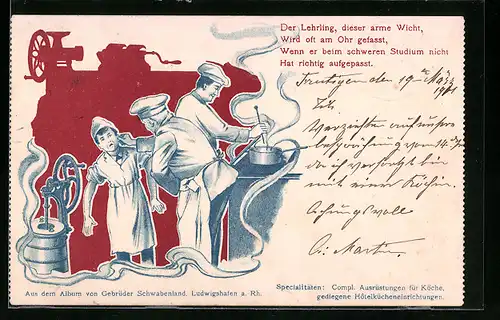 Der Lehrling, dieser arme Wicht,
Wird oft am Ohr gefasst,
Wenn er beim schweren Studium nicht
Hat richtig aufgepasst.
Frutigen den 19
Verzichte auf unsere
da ich versorgt bin
mit einer Köchin.
Achtungsvoll
Martin
Aus dem Album von Gebrüder Schwabenland, Ludwigshafen a. Rh.
Specialitäten: Compl. Ausrüstungen für Köche,
gediegene Hôtelkücheneinrichtungen.